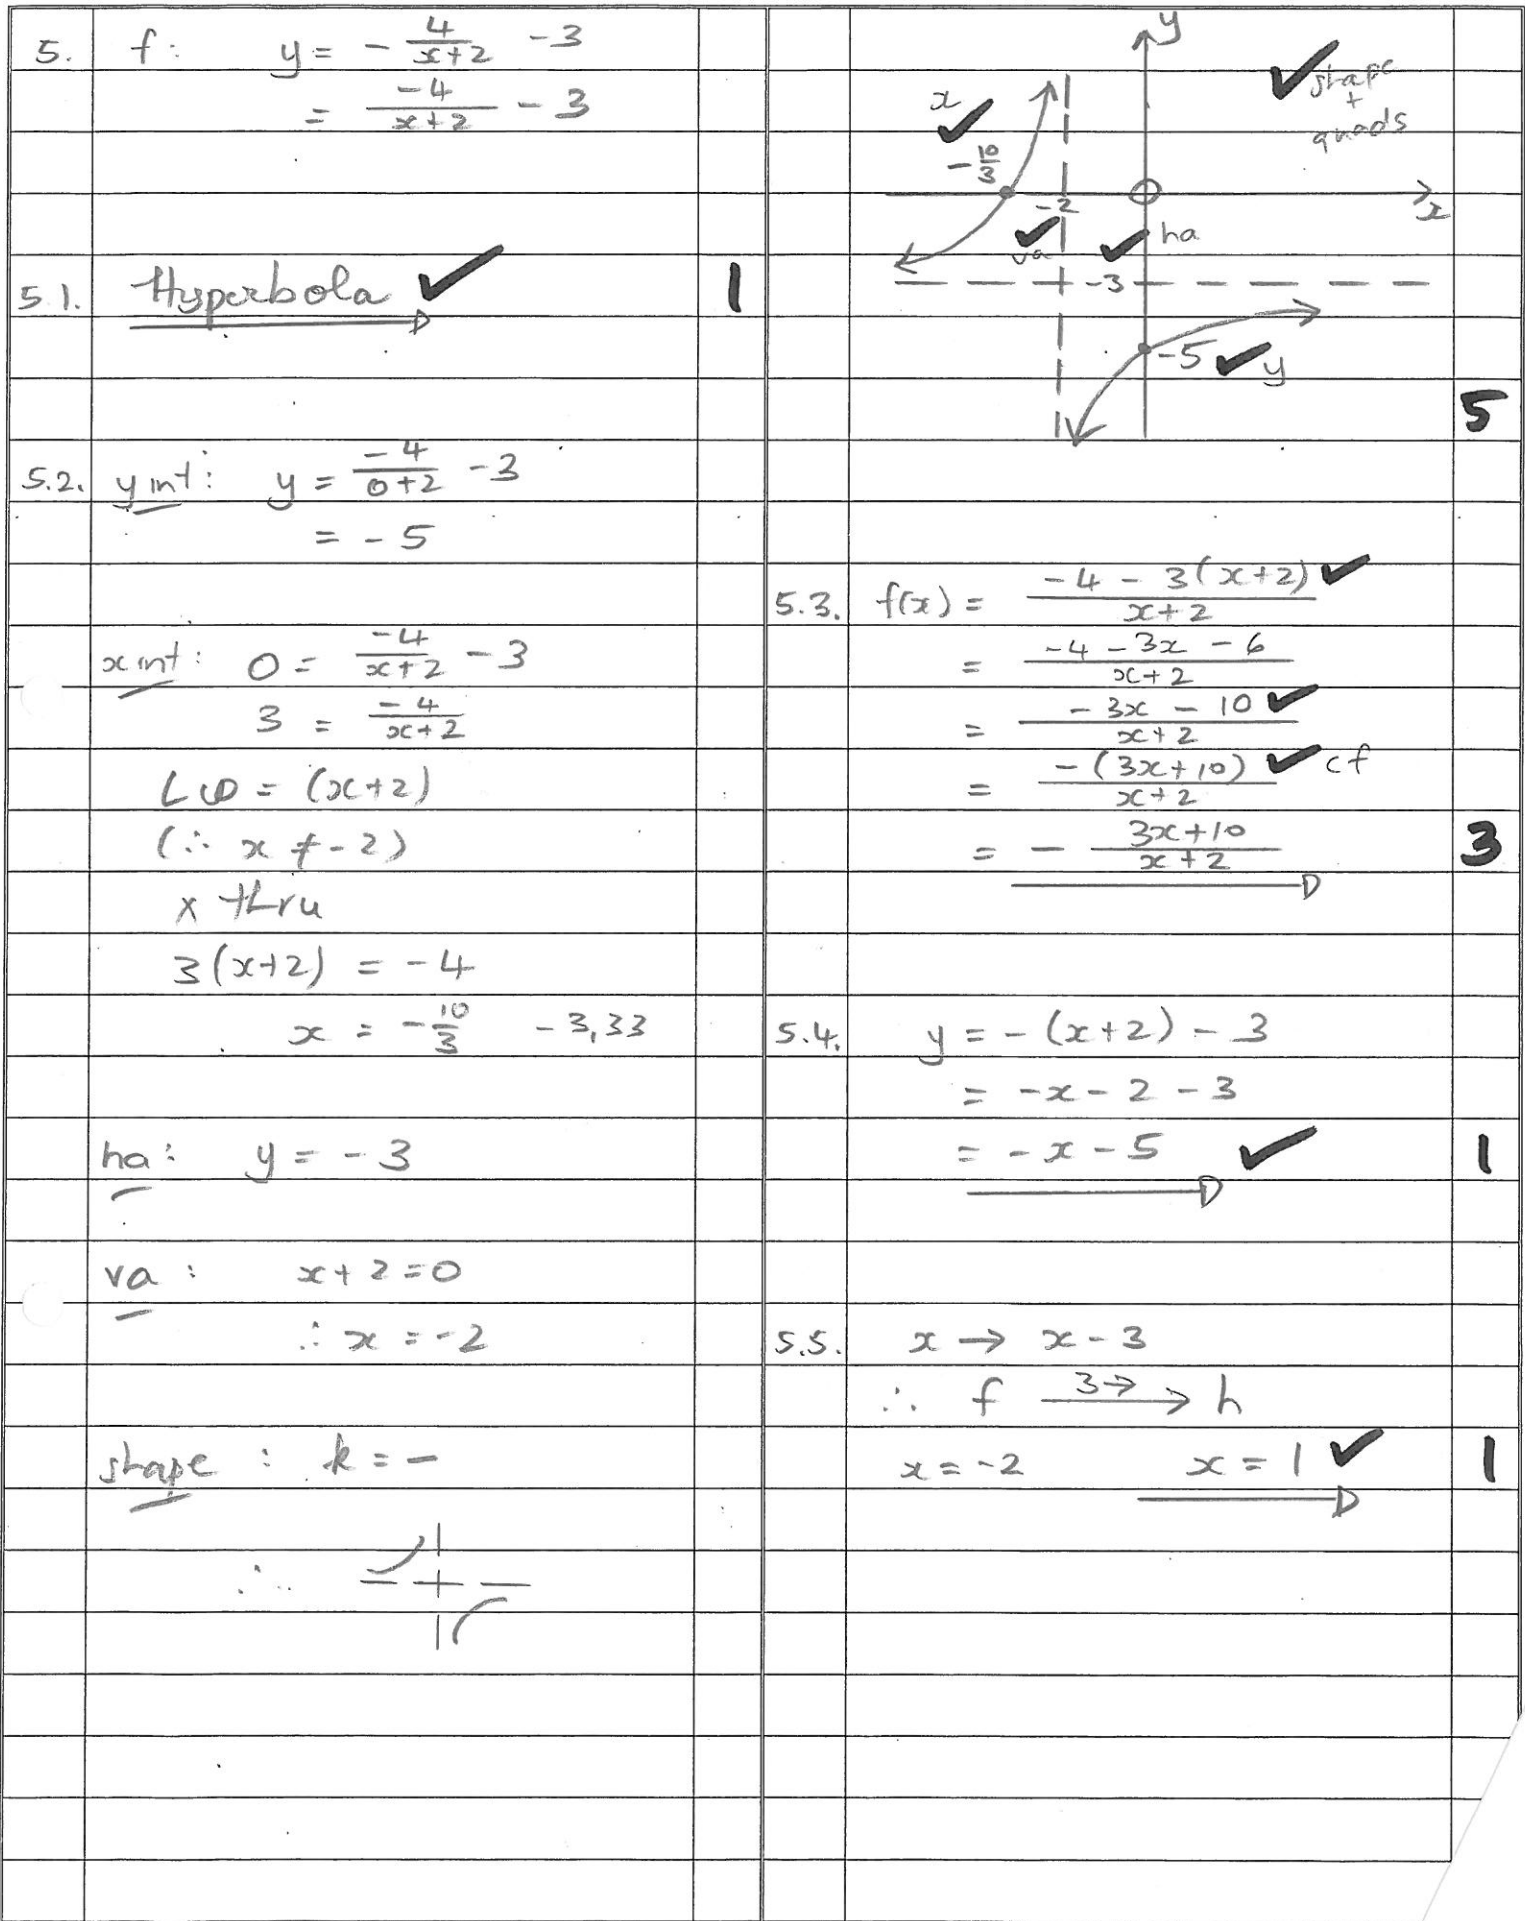 5. f: y = - 4/(x+2) - 3
= -4/(x+2) - 3
5.1. Hyperbola ✓ 1
5.2. y int: y = -4/(0+2) - 3
= - 5
x int: 0 = -4/(x+2) - 3
3 = -4/(x+2)
LCD = (x+2)
(∴ x ≠ -2)
× thru
3(x+2) = -4
x = -10/3 -3,33
ha: y = -3
va: x + 2 = 0
∴ x = -2
shape: k = -
∴
y
✓ shape
+
quads
x ✓
-10/3
-2
x
✓ va
✓ ha
-3
-5 ✓ y
5
5.3. f(x) = (-4 - 3(x+2))/(x+2) ✓
= (-4 - 3x - 6)/(x+2)
= (-3x - 10)/(x+2) ✓
= -(3x+10)/(x+2) ✓ cf
= - (3x+10)/(x+2) 3
5.4. y = -(x+2) - 3
= -x - 2 - 3
= -x - 5 ✓ 1
5.5. x → x - 3
∴ f 3→ → h
x = -2 x = 1 ✓ 1